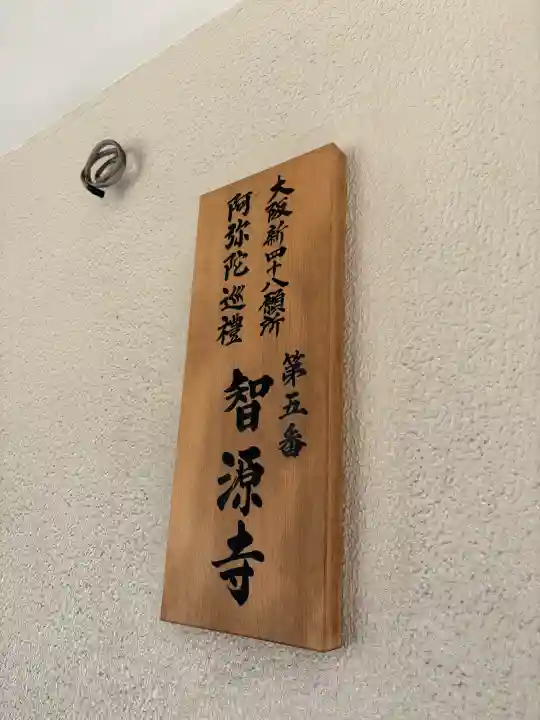 大阪新四十八願所
第五番
阿弥陀巡禮
智源寺